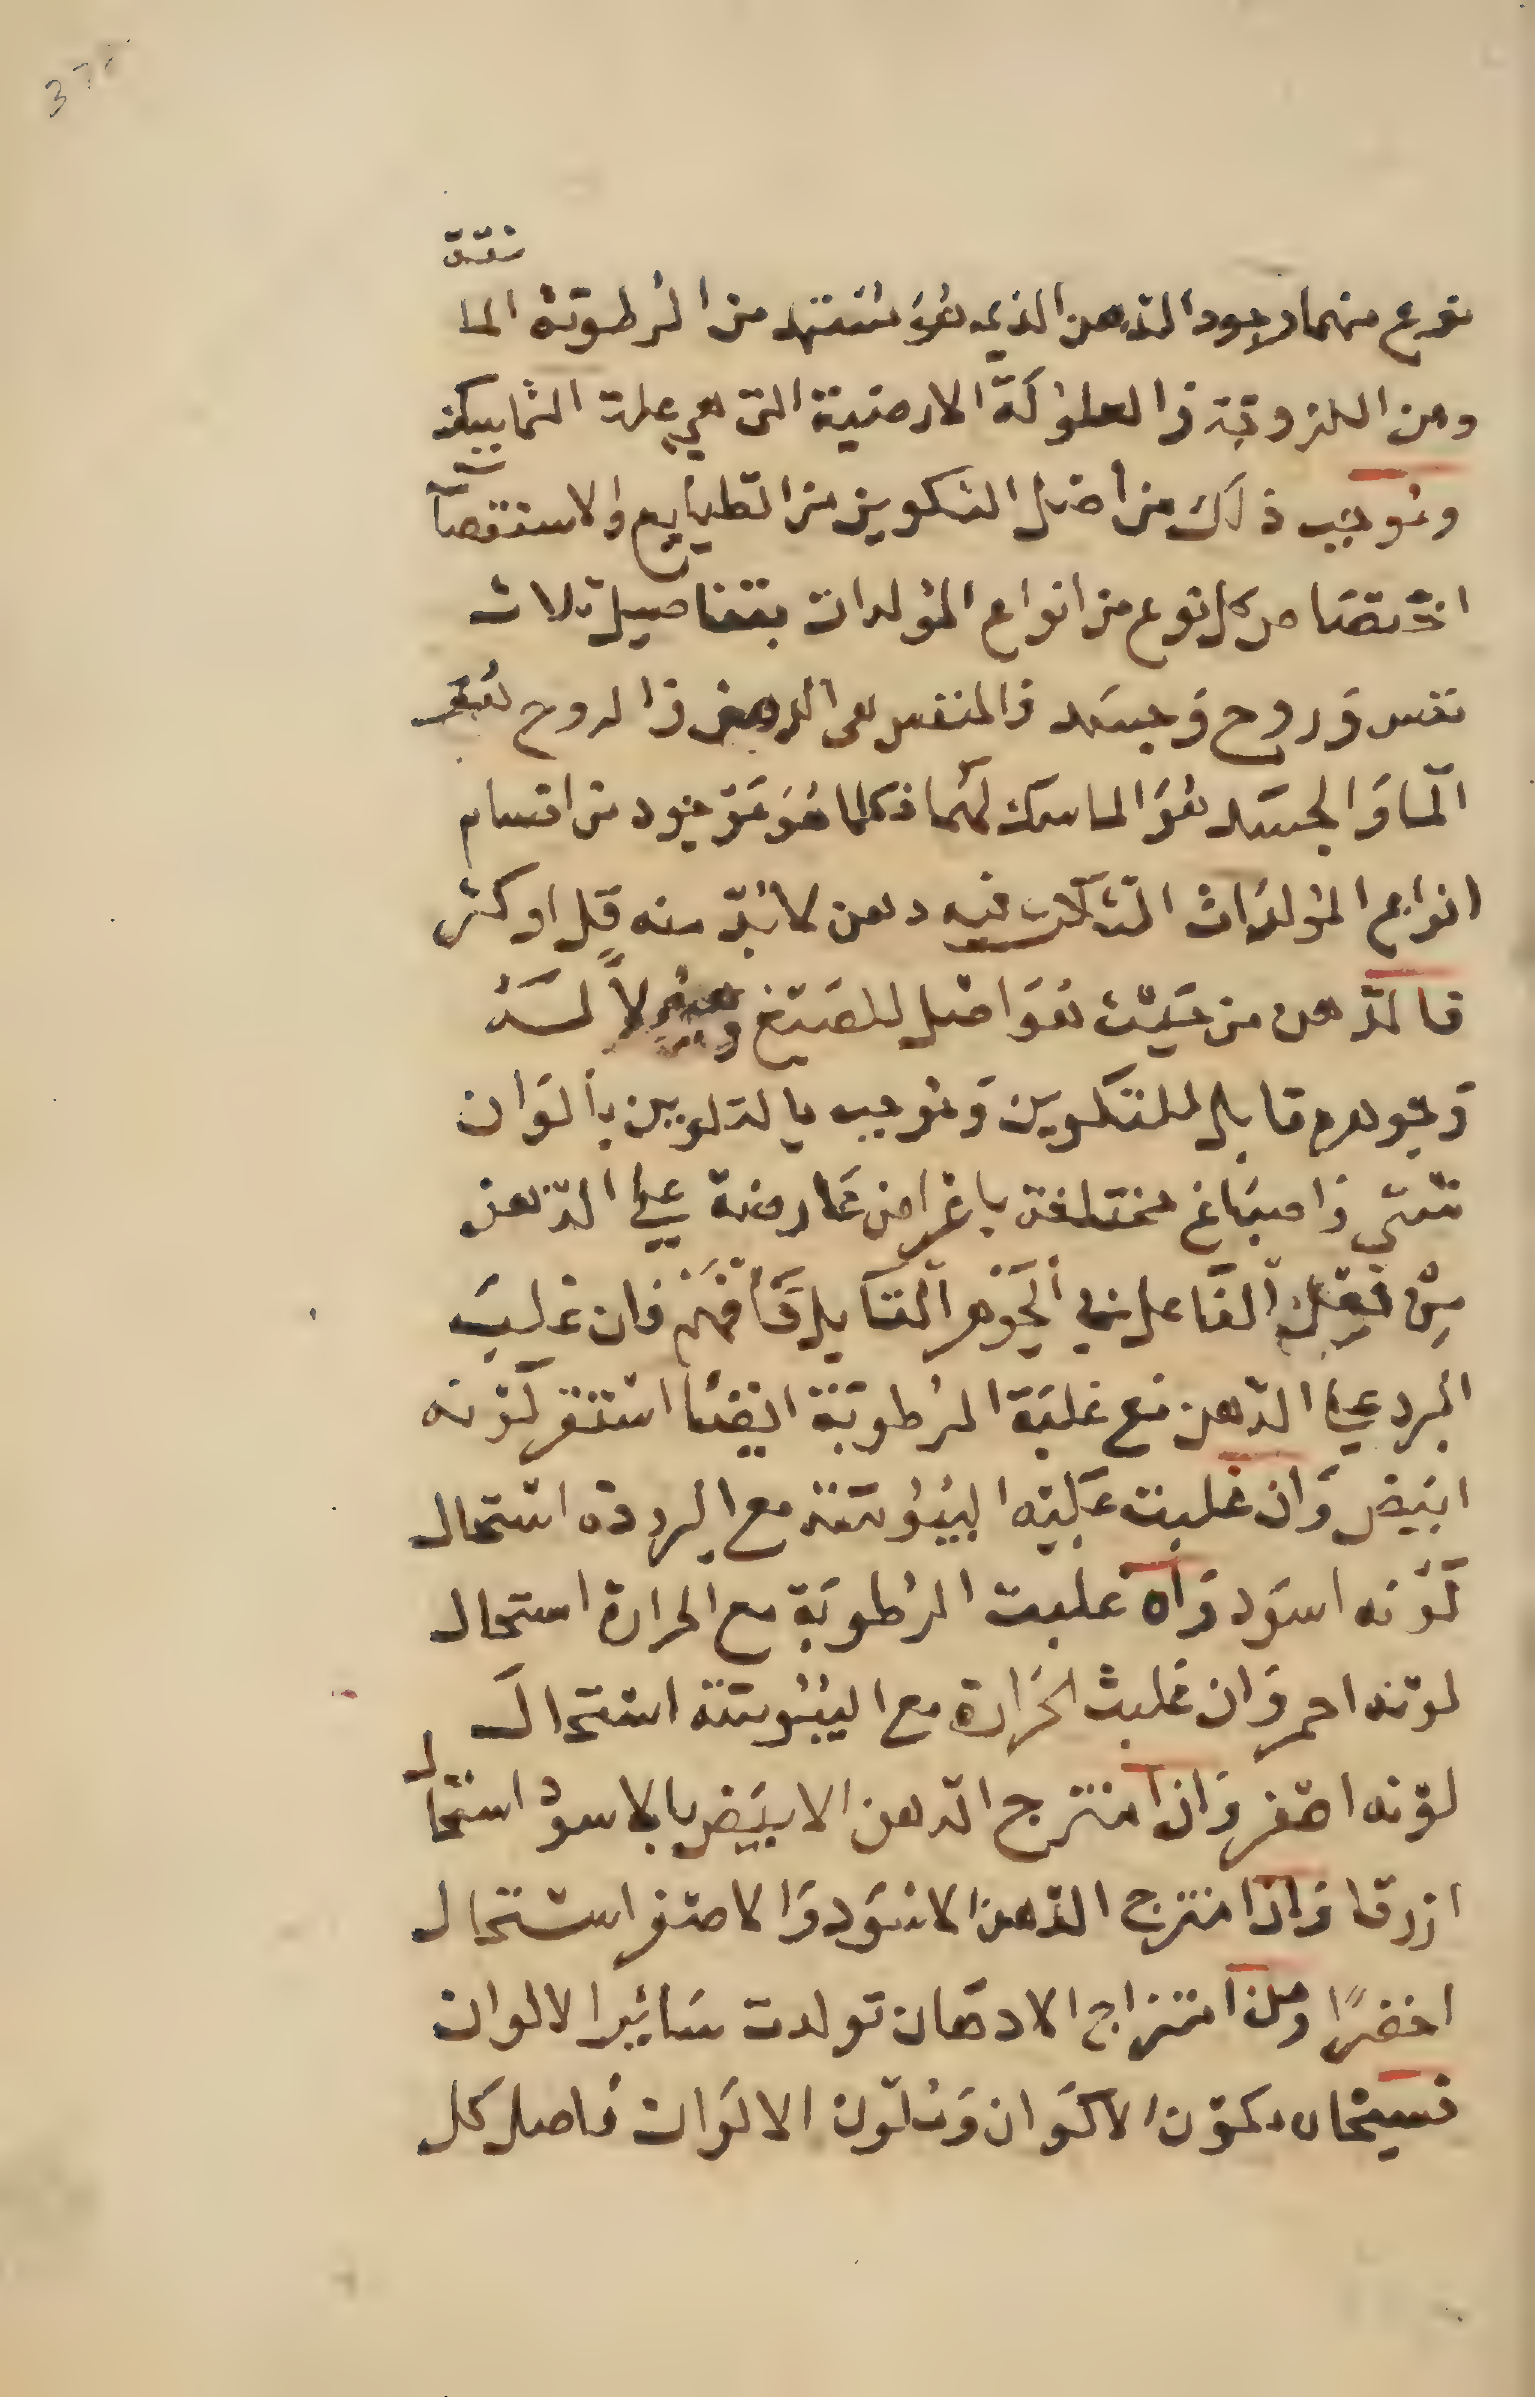 تفرع منهما وجود الدهن الذي هو مستمد من الرطوبة الما ئية
ومن اللزوجة والعلوكة الارضية التي هي علة التماسك
ونوجب ذلك من اصل التكوين من الطبايع والاستقصآت
اختصاص كل نوع من انواع المولدات بتفاصيل ثلاث
نفس وروح وجسد فالنفس هي الدهن والروح هو
الما والجسد هو الماسك لهما فكلما هو موجود من اقسام
انواع المولدات الثلاث فيه دهن لا بد منه قل او كثر
فالدهن من حيث هو اصل للصبغ
وجوهر قابل للتكوين ونوجب بالتلوين بألوان
شتي واصباغ مختلفة باغراض عارضة علي الدهن
من فعل الفاعل في الجوهر القابل فافهم فان غلب
البرد علي الدهن مع غلبة الرطوبة ايضا استقر لونه
ابيض وان غلبت عليه اليبوسة مع البرودة استحال
لونه اسود وان غلبت الرطوبة مع الحرارة استحال
لونه احمر وان غلبت الحرارة مع اليبوسة استحال
لونه اصفر واذا امتزج الدهن الابيض بالاسود استحال
ازرقا واذا امتزج الدهن الاسود والاصفر استحال
اخضرًا ومن امتزاج الادهان تولدت سائر الالوان
فسبحان مكون الاكوان وملون الالوان فاصل كل